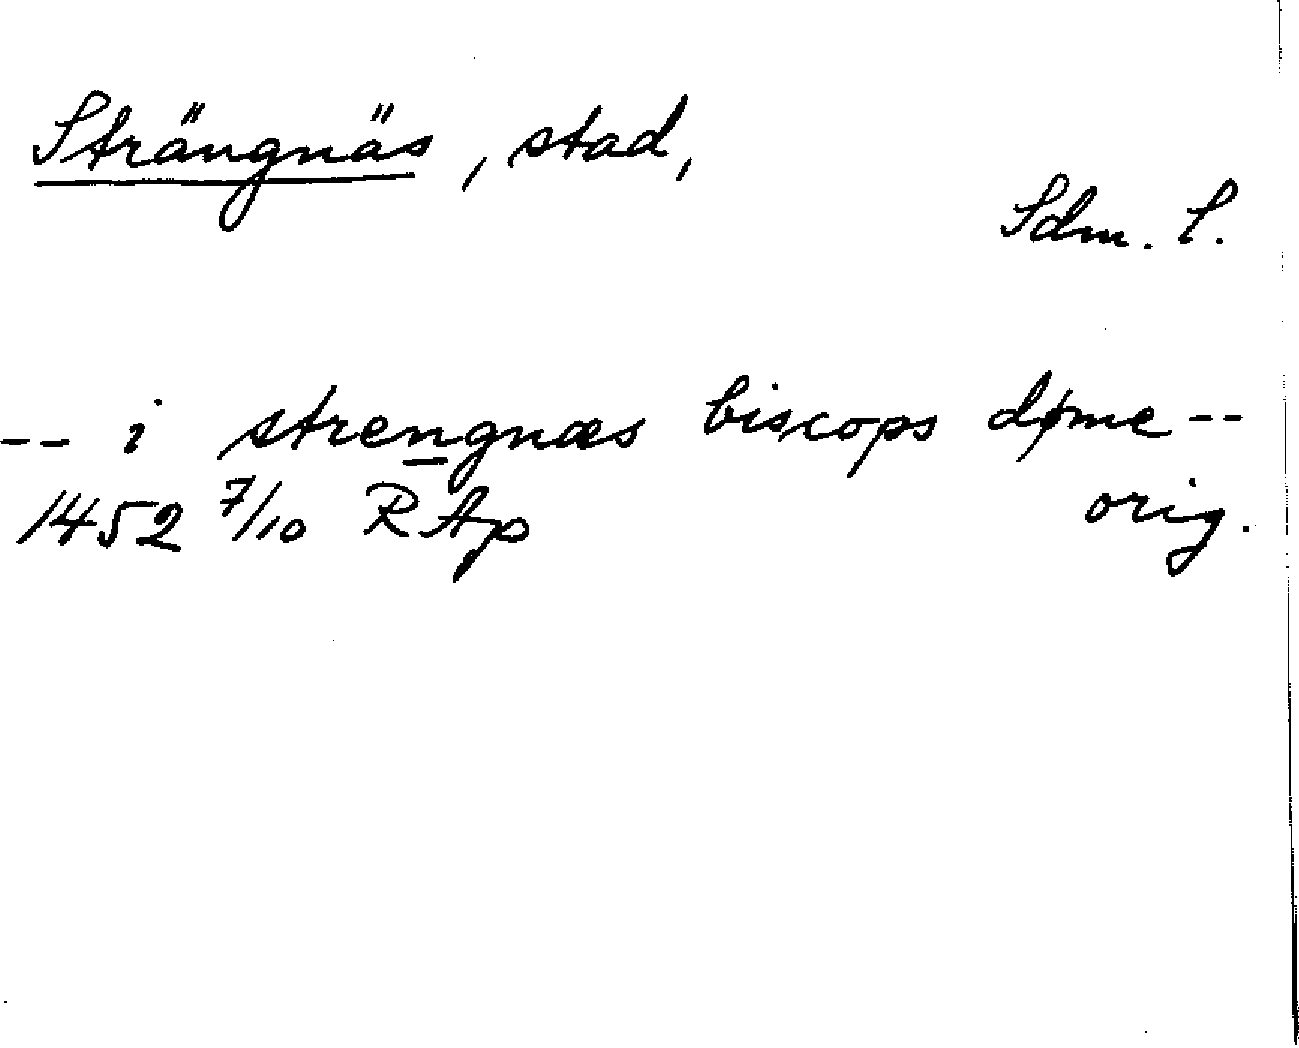 Strängnäs, stad,
Sdm. l.
-- i strengnæs biscops døme --
1452 7/10 RAp orig.